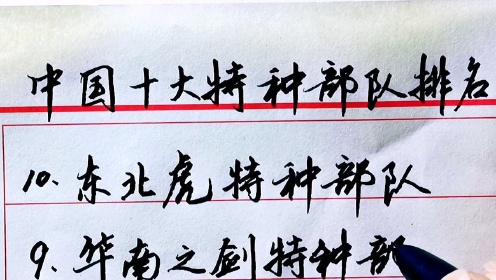 中国十大特种部队排名
10.东北虎特种部队
9.华南之剑特种部